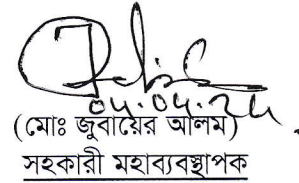 04.04.24
(মোঃ জুবায়ের আলম)
সহকারী মহাব্যবস্থাপক